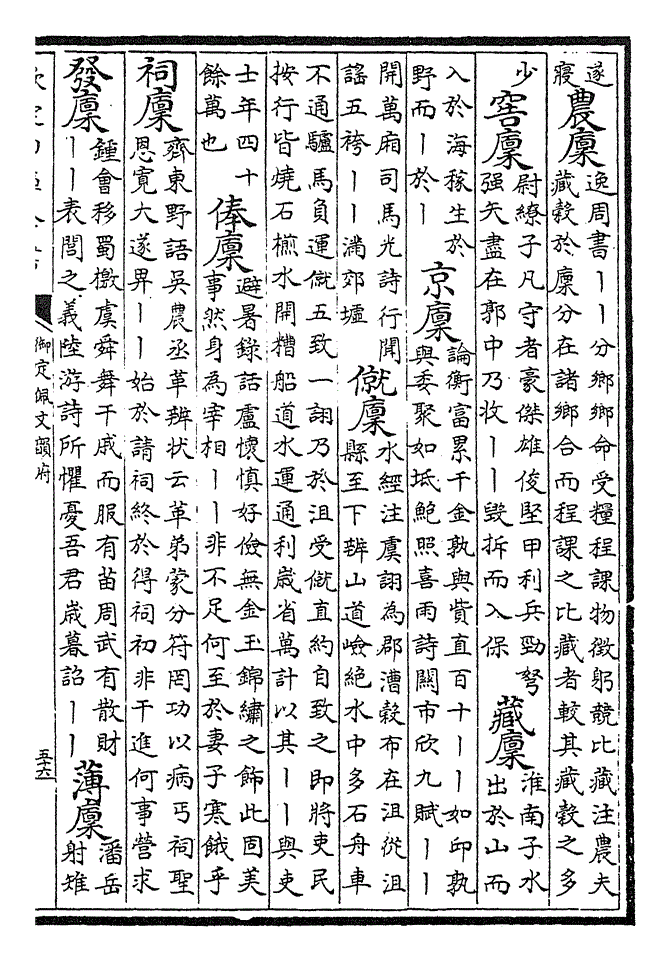 遂
寢
農廩
逸周書丨丨分鄉鄉命受糧程課物徵躬競比藏注農夫
藏穀於廩分在諸鄉合而程課之比藏者較其藏穀之多
少
窖廩
尉繚子凡守者豪傑雄俊堅甲利兵勁弩
强矢盡在郭中乃收丨丨毀拆而入保
藏廩
淮南子水
出於山而
入於海稼生於
野而丨於丨
京廩
論衡富累千金孰與貲直百十丨丨如邱孰
與委聚如坻鮑照喜雨詩關市欣九賦丨丨
開萬廂司馬光詩行聞
謠五袴丨丨滿郊墟
僦廩
水經注虞詡為郡漕穀布在沮從沮
縣至下辨山道嶮絕水中多石舟車
不通驢馬負運僦五致一詡乃於沮受僦直約自致之即將吏民
按行皆燒石樵水開糟船道水運通利歲省萬計以其丨丨與吏
士年四十
餘萬也
俸廩
避暑錄話盧懷慎好儉無金玉錦繡之飾此固美
事然身為宰相丨丨非不足何至於妻子寒餓乎
祠廩
齊東野語吳農丞革辨状云革弟蒙分符罔功以病丐祠聖
恩寛大遂畀丨丨始於請祠終於得祠初非干進何事營求
發廩
鍾會移蜀檄虞舜舞干戚而服有苗周武有散財
丨丨表閭之義陸游詩所懼憂吾君歲暮詔丨丨
薄廩
潘岳
射雉
御定佩文韻府
五十六